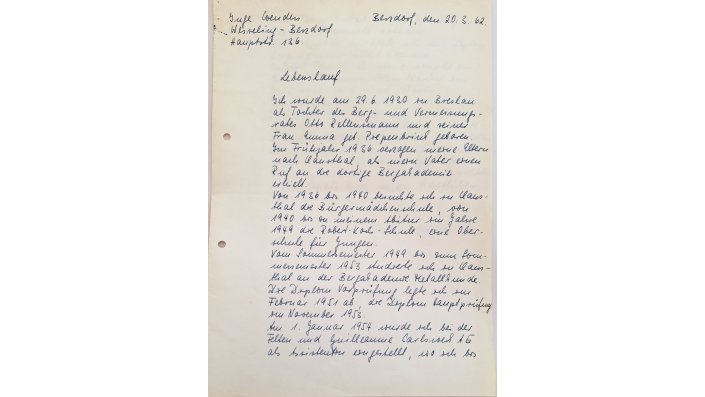 Inge Coenders
Wesseling-Berzdorf
Hauptstr. 136
Berzdorf, den 20.3.62
Lebenslauf
Ich wurde am 29.6.1930 in Breslau
als Tochter des Berg- und Vermessungs-
rates Otto Rellensmann und seiner
Frau Emma geb. Prepenbrink geboren.
Im Frühjahr 1936 verzogen meine Eltern
nach Clausthal, als mein Vater einen
Ruf an die dortige Bergakademie
erhielt.
Von 1936 bis 1940 besuchte ich in Claus-
thal die Bürgermädchenschule, von
1940 bis zu meinem Abitur im Jahre
1949 die Robert-Koch-Schule, eine Ober-
schule für Jungen.
Vom Sommersemester 1949 bis zum Som-
mersemester 1953 studierte ich in Claus-
thal an der Bergakademie Metallkunde.
Die Diplom Vorprüfung legte ich im
Februar 1951 ab, die Diplom Hauptprüfung
im November 1953.
Am 1. Januar 1954 wurde ich bei der
Felten und Guilleaume Carlswerk AG
als Assistentin eingestellt, wo ich bis